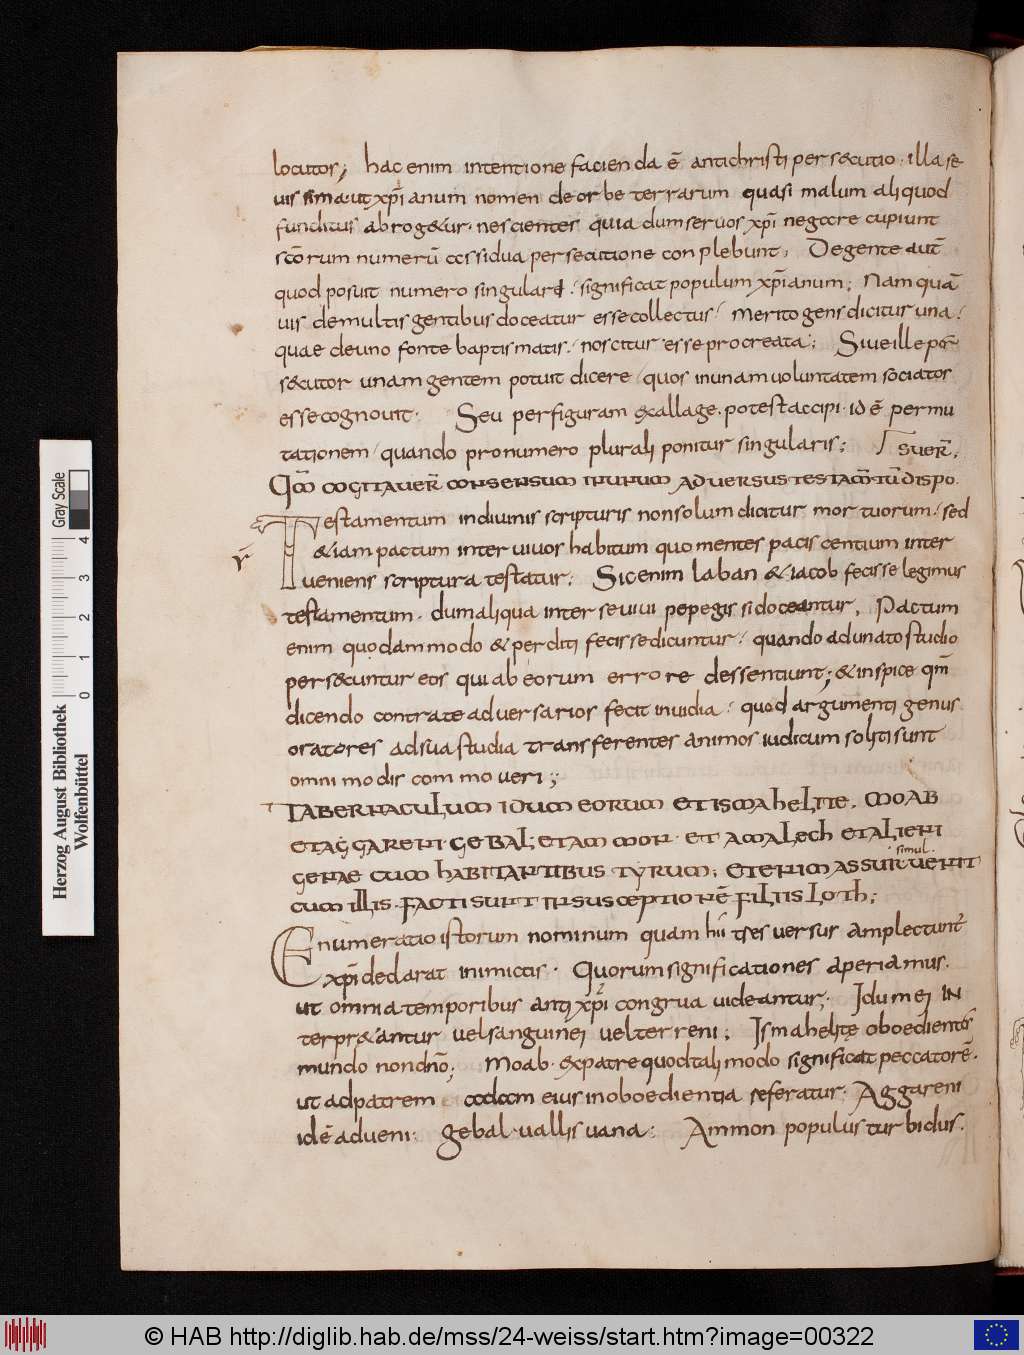 locutor; hac enim intentione facienda ē antichristi persecutio. illa se
uis simaut xp̄ianum nomen de orbe terrarum quasi malum aliquod
funditus abrog&ur. nescientes quia dum seruos xp̄i negare cupiunt
sc̄orum numerū assidua persecutione conplebunt; De gente aut̄
quod posuit numero singulare. significat populum xp̄ianum; Nam quā
uis de multis gentibus doceatur esse collectus. Merito gens dicitur una.
quae de uno fonte baptismatis. noscitur esse procreata; Siue ille per
s&cutor unam gentem potuit dicere quos in unam uoluntatem sociatos
esse cognouit. Seu per figuram &allage. potest accipi. id ē permu
tationem quando pro numero plurali ponitur singularis; suer̄.
Qm̄ cogitauer̄ consensum in unum aduersus testam̄ tuū dispo.
Testamentum in diuinis scripturis non solum dicitur mortuorum. sed
&iam pactum inter uiuos habitum quo mentes pacis centium inter
ueniens scriptura testatur; Sic enim laban & iacob fecisse legimus
testamentum. dum aliqua inter se uiui pepegissi doceantur. Pactum
enim quodam modo & perditi fecisse dicuntur. quando adunato studio
persecuntur eos qui ab eorum errore dessentiunt; & inspice qm̄
dicendo contra te aduersarios fecit inuidia. quod argumenti genus
oratores ad sua studia transferentes animos iudicum soliti sunt
omnimodis commoueri;
Tabernaculum idumeorum et ismahelite. Moab
et aggareni. Gebal; et ammon. et amalech et alieni
simul.
genae cum habitantibus tyrum; etenim assur uenit
cum illis. facti sunt in susceptionē filiis Loth;
Enumeratio istorum nominum quam hii tres uersus amplectunt̄
xp̄i declarat inimicis. Quorum significationes aperiamus.
ut omnia temporibus antixp̄i congrua uideantur. Idumei in
terpr&antur uel sanguinei uel terreni; Ismahelitę oboedientes
mundo non dn̄o; Moab. ex patre quod tali modo significat peccatorē.
ut ad patrem adam eius inoboedientia referatur. Aggareni
id ē adueni. Gebal. uallis uana; Ammon populus turbidus.
Herzog August Bibliothek
Wolfenbüttel
Gray Scale
0 1 2 3 4
© HAB http://diglib.hab.de/mss/24-weiss/start.htm?image=00322